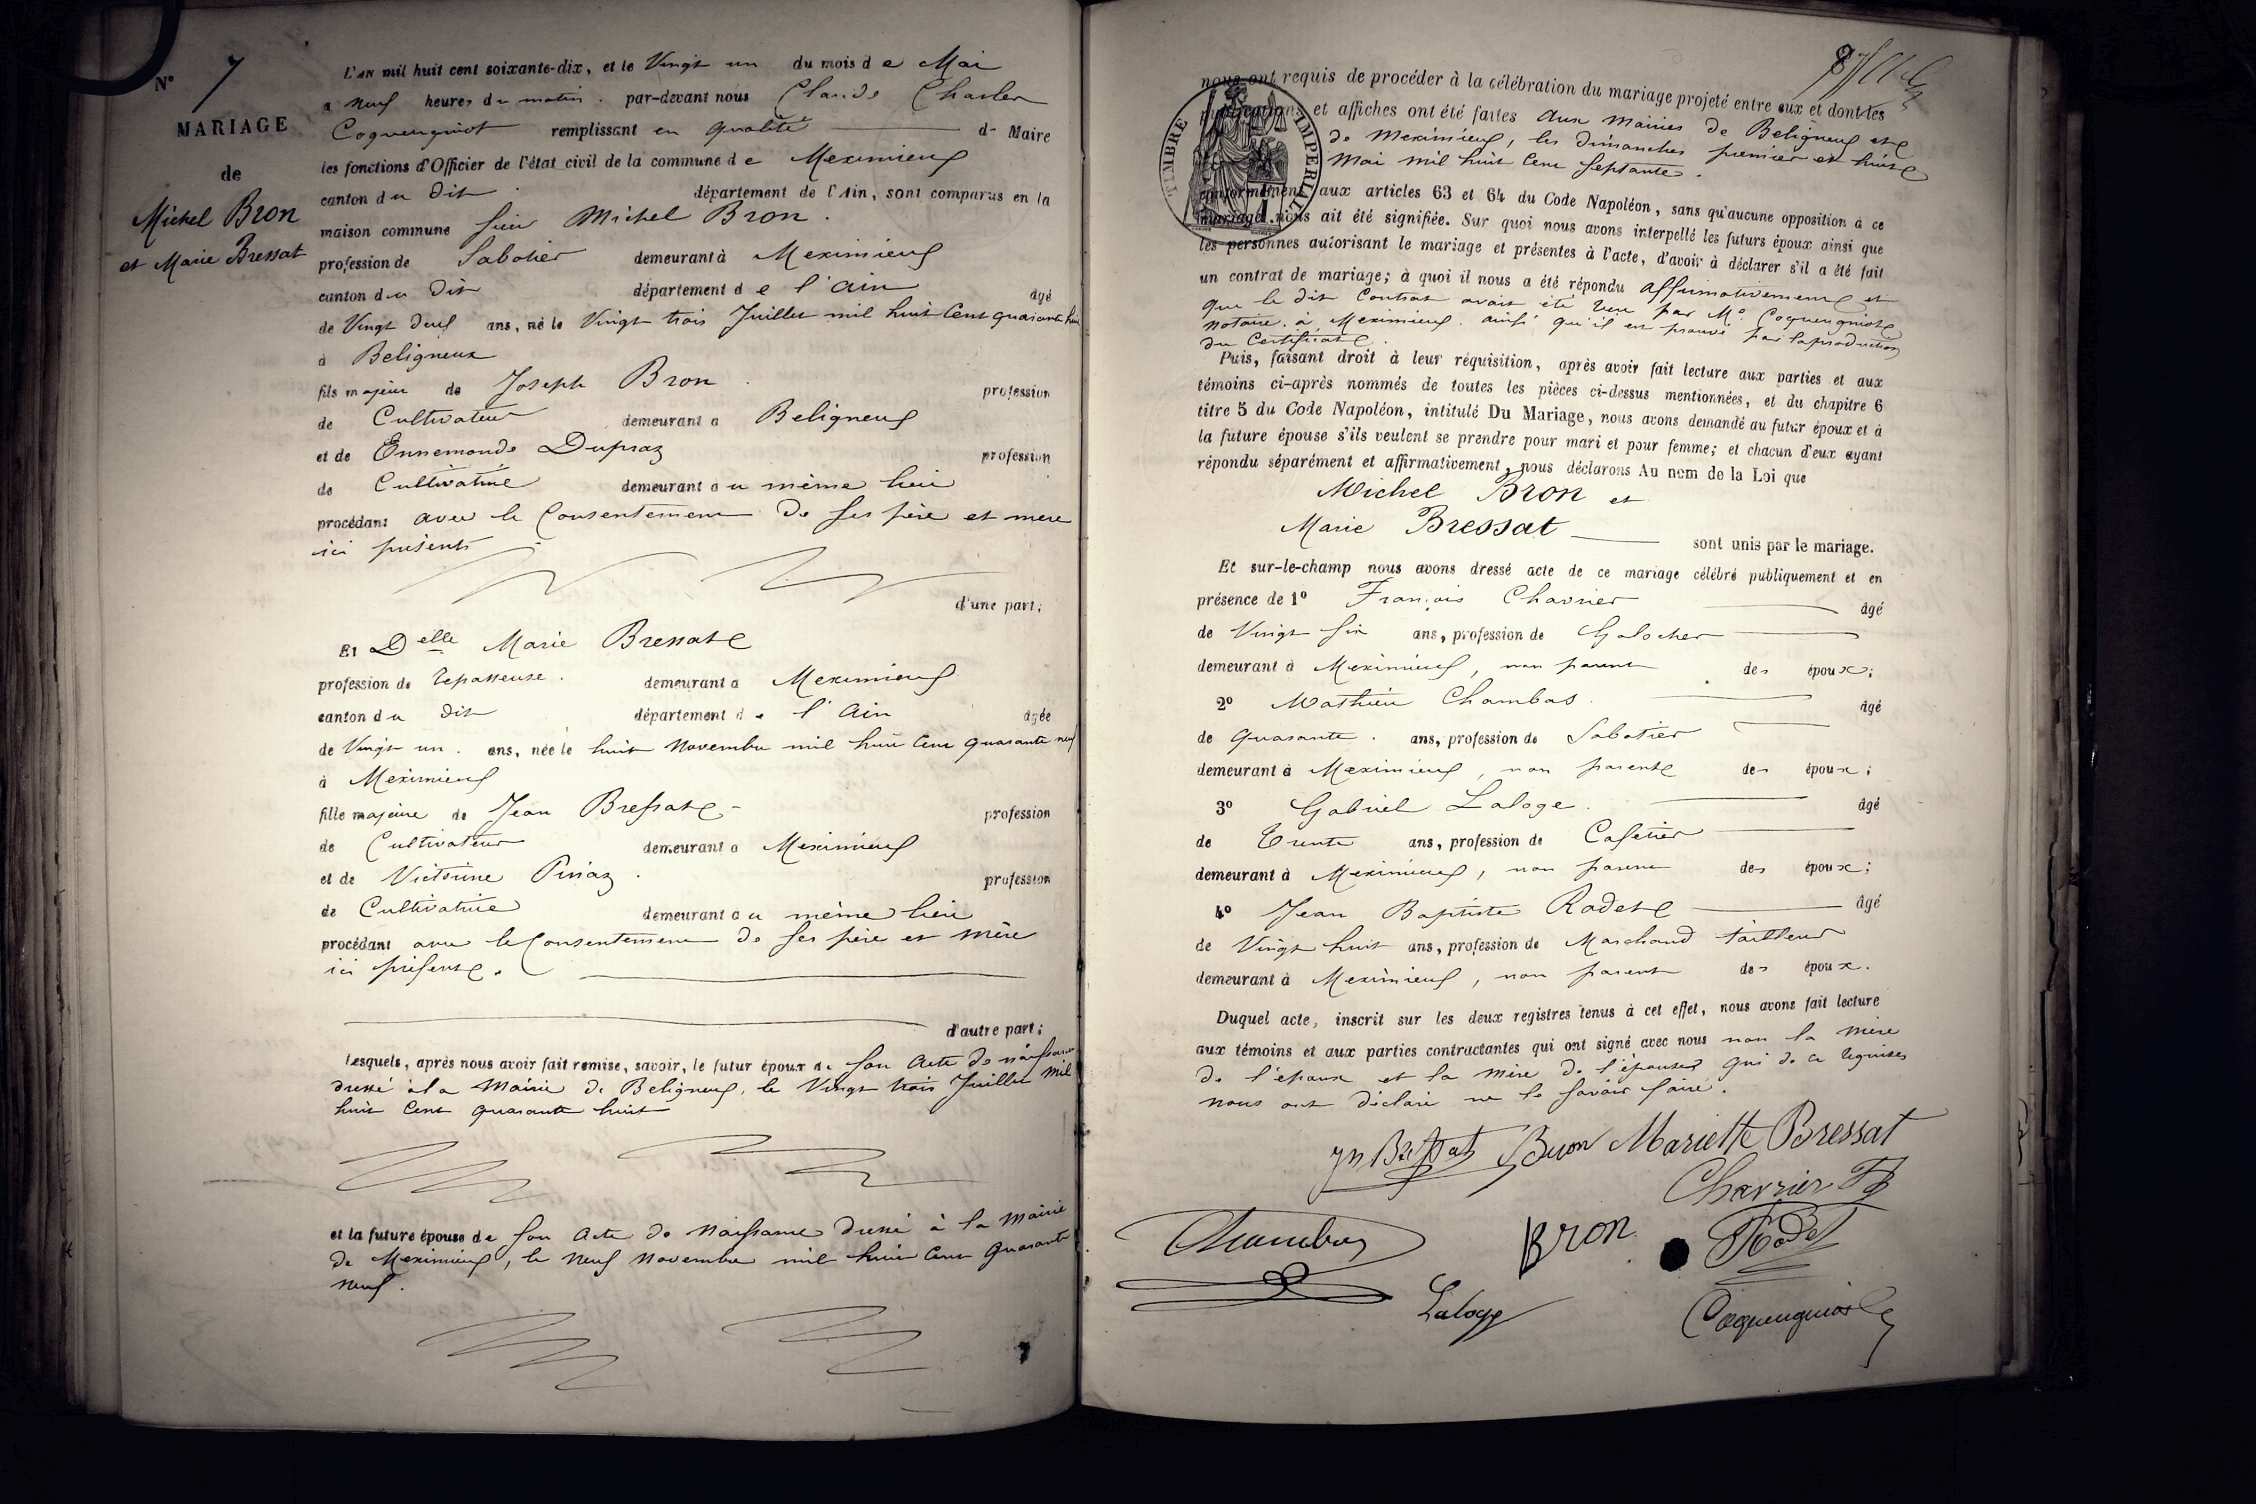 N° 7
MARIAGE
de
Michel Bron
et Marie Bressat
L'an mil huit cent soixante-dix, et le Vingt un du mois de Mai
a neuf heures du matin. par-devant nous Claude Charles
Coquenguiot remplissant en qualité de Maire
les fonctions d'Officier de l'état civil de la commune de Meximieux
canton du dit département de l'Ain, sont comparus en la
maison commune Michel Bron.
profession de Sabotier demeurant à Meximieux
canton du dit département de l'Ain âgé
de Vingt deux ans, né le Vingt trois Juillet mil huit Cent quarante huit
à Beligneux
fils majeur de Joseph Bron profession
de Cultivateur demeurant a Beligneux
et de Ennemonde Dupraz profession
de Cultivatrice demeurant au même lieu
procédant avec le Consentement de ses père et mere
ici présents
d'une part;
Et Delle Marie Bressat
profession de repasseuse. demeurant a Meximieux
canton du dit département de l'Ain âgée
de Vingt un. ans, née le huit Novembre mil huit Cent quarante neuf
à Meximieux
fille majeure de Jean Bressat profession
de Cultivateur demeurant a Meximieux
et de Victorine Piriaz. profession
de Cultivatrice demeurant au même lieu
procédant avec le Consentement de ses père et mère
ici présents.
d'autre part;
Lesquels, après nous avoir fait remise, savoir, le futur époux de son acte de naissance
dressé à la Mairie de Beligneux, le Vingt trois Juillet mil
huit Cent quarante huit
et la future épouse de son acte de Naissance dressé à la Mairie
de Meximieux, le Neuf Novembre mil huit Cent Quarante
Neuf.
8
nous ont requis de procéder à la célébration du mariage projeté entre eux et dont les
TIMBRE IMPERIAL
publications et affiches ont été faites aux mairies de Beligneux et
de Meximieux, les dimanches premier et huit
Mai mil huit Cent Septante.
conformément aux articles 63 et 64 du Code Napoléon, sans qu'aucune opposition à ce
mariage nous ait été signifiée. Sur quoi nous avons interpellé les futurs époux ainsi que
les personnes autorisant le mariage et présentes à l'acte, d'avoir à déclarer s'il a été fait
un contrat de mariage; à quoi il nous a été répondu affirmativement et
que le dit Contrat avait été reçu par Me. Coquenguiot
notaire à Meximieux. ainsi qu'il est prouvé par la production
du Certificat.
Puis, faisant droit à leur réquisition, après avoir fait lecture aux parties et aux
témoins ci-après nommés de toutes les pièces ci-dessus mentionnées, et du chapitre 6
titre 5 du Code Napoléon, intitulé Du Mariage, nous avons demandé au futur époux et à
la future épouse s'ils veulent se prendre pour mari et pour femme; et chacun d'eux ayant
répondu séparément et affirmativement, nous déclarons Au nom de la Loi que
Michel Bron et
Marie Bressat
sont unis par le mariage.
Et sur-le-champ nous avons dressé acte de ce mariage célébré publiquement et en
présence de 1° François Charrier âgé
de Vingt six ans, profession de Galocher
demeurant à Meximieux, non parent des époux;
2° Mathieu Chambas. âgé
de quarante. ans, profession de Sabotier
demeurant à Meximieux, non parent des époux;
3° Gabriel Laloge. âgé
de Trente ans, profession de Cafetier
demeurant à Meximieux, non parent des époux;
4° Jean Baptiste Rodet âgé
de Vingt huit ans, profession de Marchand tailleur
demeurant à Meximieux, non parent des époux.
Duquel acte, inscrit sur les deux registres tenus à cet effet, nous avons fait lecture
aux témoins et aux parties contractantes qui ont signé avec nous non la mère
de l'époux et la mère de l'épouse qui de ce requises
nous ont déclaré ne le savoir faire.
Jn Bressat Bron Mariette Bressat
Charrier
Chambas Bron Rodet
Laloge
Coquenguiot